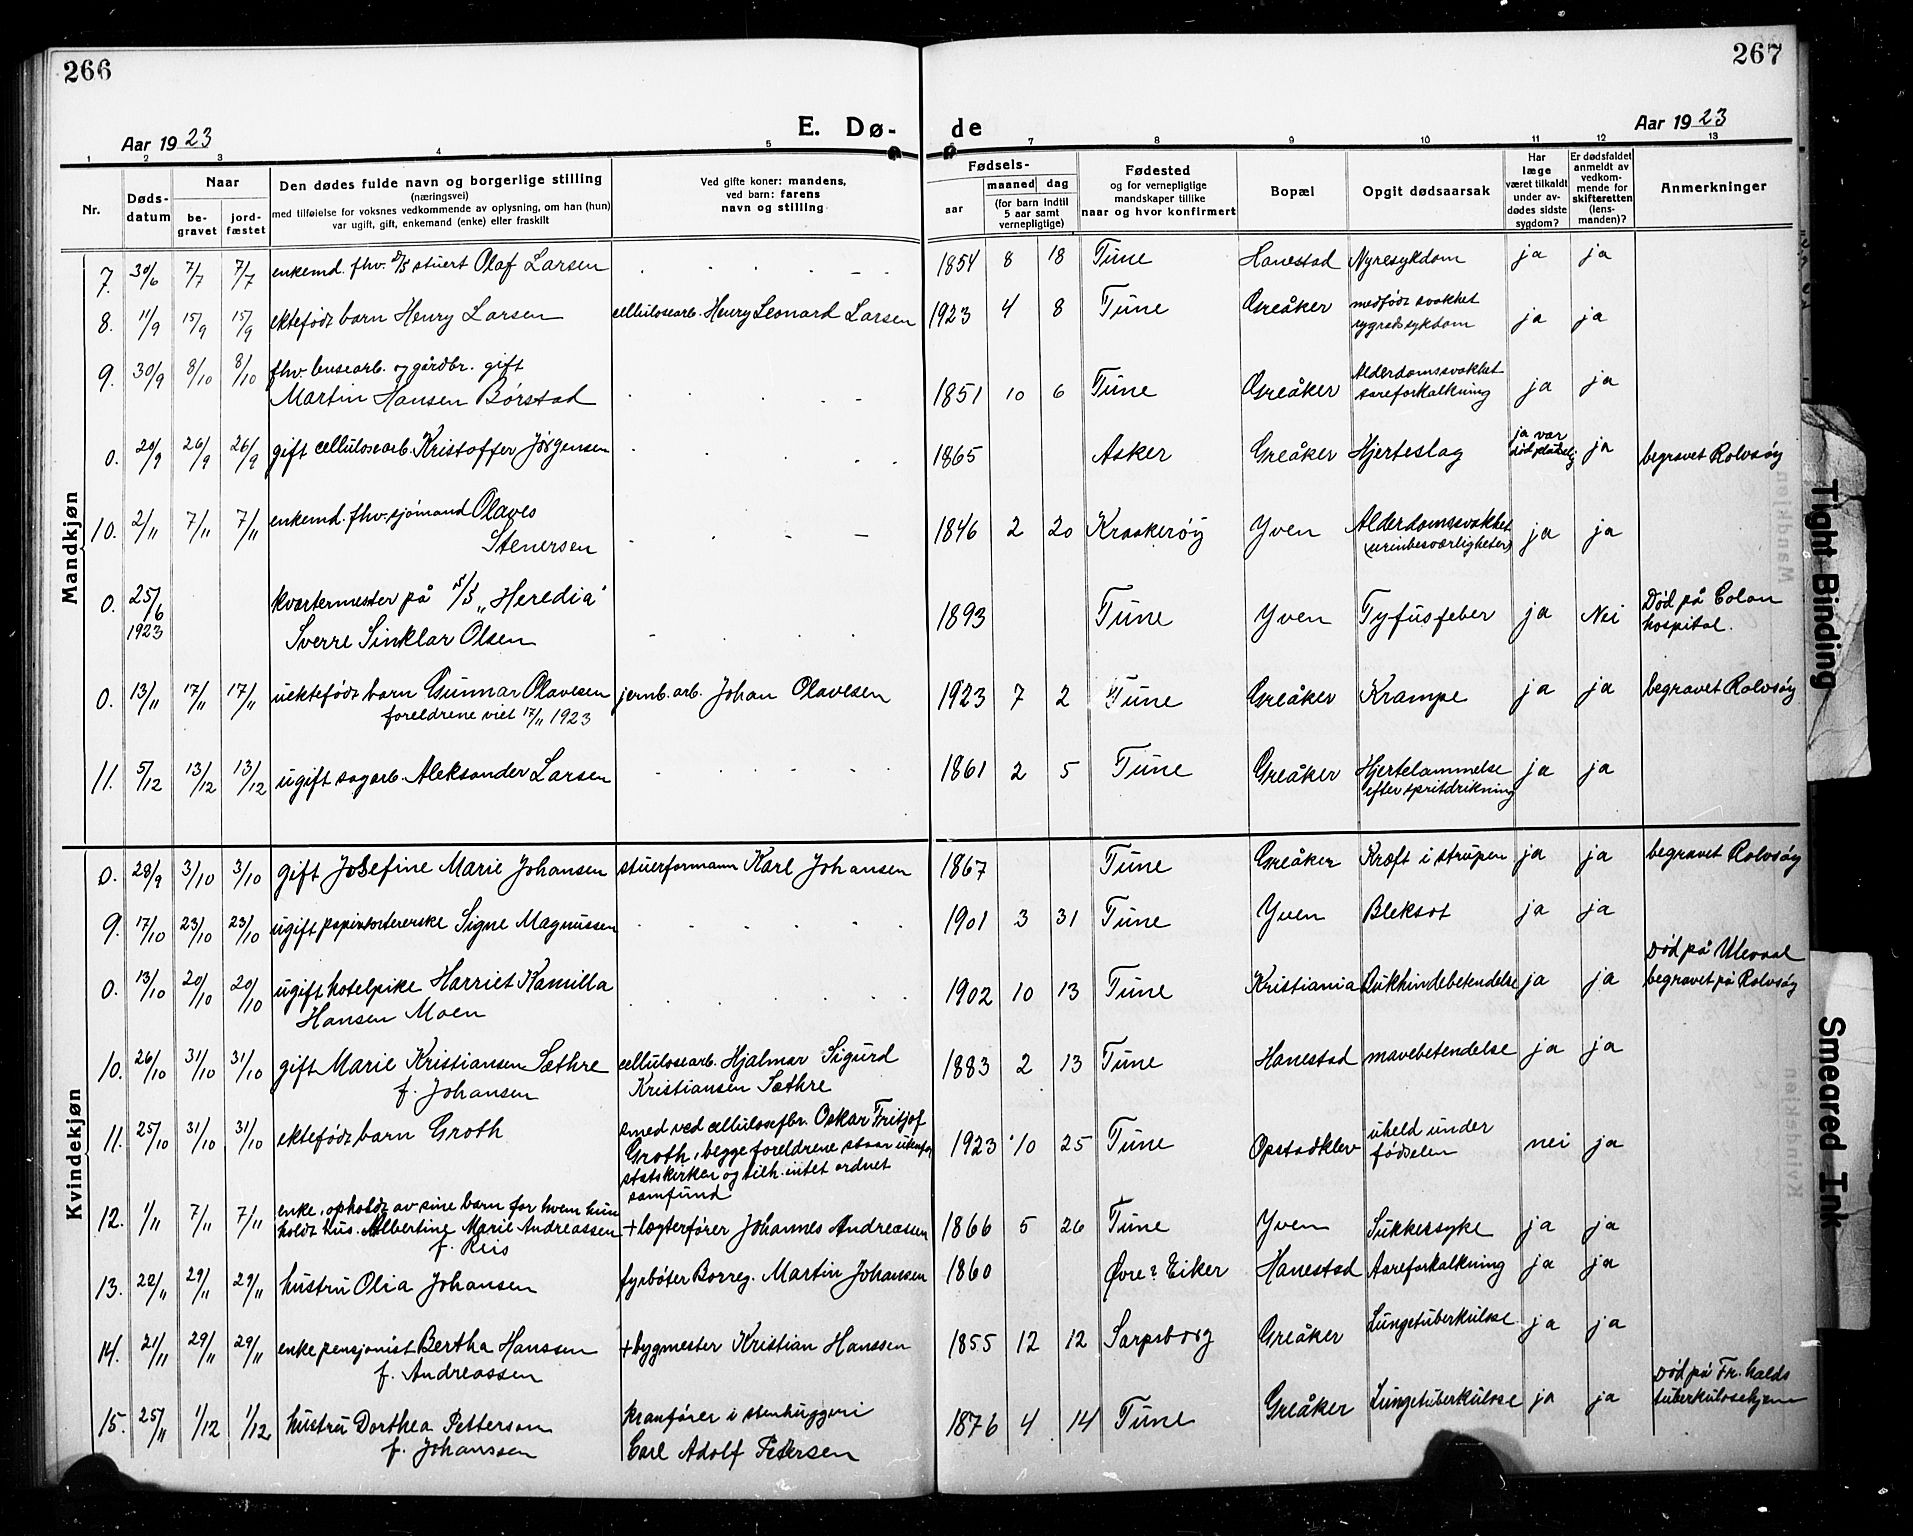 266
267
Aar 1923
E. Dø- de
Aar 1923
1 2 3 4 5 6 7 8 9 10 11 12 13
Nr.
Døds-
datum
Naar
be-
gravet
jord-
fæstet
Den dødes fulde navn og borgerlige stilling
(næringsvei)
med tilføielse for voksnes vedkommende av oplysning, om han (hun)
var ugift, gift, enkemand (enke) eller fraskilt
Ved gifte koner: mandens,
ved barn: farens
navn og stilling
Fødsels-
aar
maaned
dag
(for barn indtil
5 aar samt
vernepligtige)
Fødested
og for vernepligtige
mandskaper tillike
naar og hvor konfirmert
Bopæl
Opgit dødsaarsak
Har
læge
været tilkaldt
under av-
dødes sidste
sygdom?
Er dødsfaldet
anmeldt av
vedkom-
mende for
skifteretten
(lens-
manden)?
Anmerkninger
Mandkjøn
7. 30/6 7/7 7/7 enkemd. fhv. D/S stuert Olaf Larsen 1854 8 18 Tune Hanestad Nyresykdom ja ja
8. 11/9 15/9 15/9 ektefødt barn Henry Larsen cellulosearb. Henry Leonard Larsen 1923 4 8 Tune Greåker medfødt svakhet
rygradssykdom ja ja
9. 30/9 8/10 8/10 fhv. lensearb. og gårdbr. gift
Martin Hansen Børstad 1851 10 6 Tune Greåker Alderdomssvakhet
aareforkalkning ja ja
0. 20/9 26/9 26/9 gift cellulosearb. Kristoffer Jørgensen 1865 Asker Greåker Hjerteslag ja var
død pludselig ja begravet Rolvsøy
10. 2/11 7/11 7/11 enkemd. fhv. sjømand Olaves
Stenersen 1846 2 20 Kraakerøy Yven Alderdomssvakhet
(urinbesværligheter) ja ja
0. 25/6
1923 kvartermester på S/S „Heredia"
Sverre Sinklar Olsen 1893 Tune Yven Tyfusfeber ja Nei Død på Colon
hospital.
0. 13/11 17/11 17/11 uektefødt barn Gunnar Olavesen
foreldrene viet 17/11 1923 jernb. arb. Johan Olavesen 1923 7 2 Tune Greåker Krampe ja ja begravet Rolvsøy
11. 5/12 13/12 13/12 ugift sagarb. Aleksander Larsen 1861 2 5 Tune Greåker Hjertelammelse
efter spritdrikning ja ja
Kvindekjøn
0. 28/9 3/10 3/10 gift Josefine Marie Johansen stuerformann Karl Johansen 1867 Tune Greåker Kræft i strupen ja ja begravet Rolvsøy
9. 17/10 23/10 23/10 ugift papirsortererske Signe Magnussen 1901 3 31 Tune Yven Bleksot ja ja
0. 13/10 20/10 20/10 ugift hotelpike Harriet Kamilla
Hansen Moen 1902 10 13 Tune Kristiania Bukhindebetendelse ja ja Død på Ulevaal
begravet på Rolvsøy
10. 26/10 31/10 31/10 gift Marie Kristiansen Sæthre
f. Johansen cellulosearb. Hjalmar Sigurd
Kristiansen Sæthre 1883 2 13 Tune Hanestad mavebetendelse ja ja
11. 25/10 31/10 31/10 ektefødt barn Groth smed ved cellulosefbr. Oskar Fritjof
Groth, begge foreldrene staar utenfor
statskirken og tilh. intet ordnet
samfund 1923 10 25 Tune Opstadklev uheld under
fødselen nei ja
12. 1/11 7/11 7/11 enke, opholdt av sine barn for hvem hun
holdt hus. Albertine Marie Andreassen
f. Reis + lægterfører Johannes Andreassen 1866 5 26 Tune Yven Sukkersyke ja ja
13. 22/11 29/11 29/11 hustru Olia Johansen fyrbøter Borreg. Martin Johansen 1860 Øvre? Eiker Hanestad Aareforkalkning ja ja
14. 21/11 29/11 29/11 enke pensjonist Bertha Hanssen
f. Andreassen + bygmester Kristian Hanssen 1855 12 12 Sarpsborg Greåker Lungetuberkulose ja ja
15. 25/11 1/12 1/12 hustru Dorthea Petterson
f. Johanssen kranfører i stenhuggeri
Carl Adolf Pedersen 1876 4 14 Tune Greåker Lungetuberkulose ja ja Død på Fr. halds
tuberkulosehjem
Tight Binding
Smeared Ink